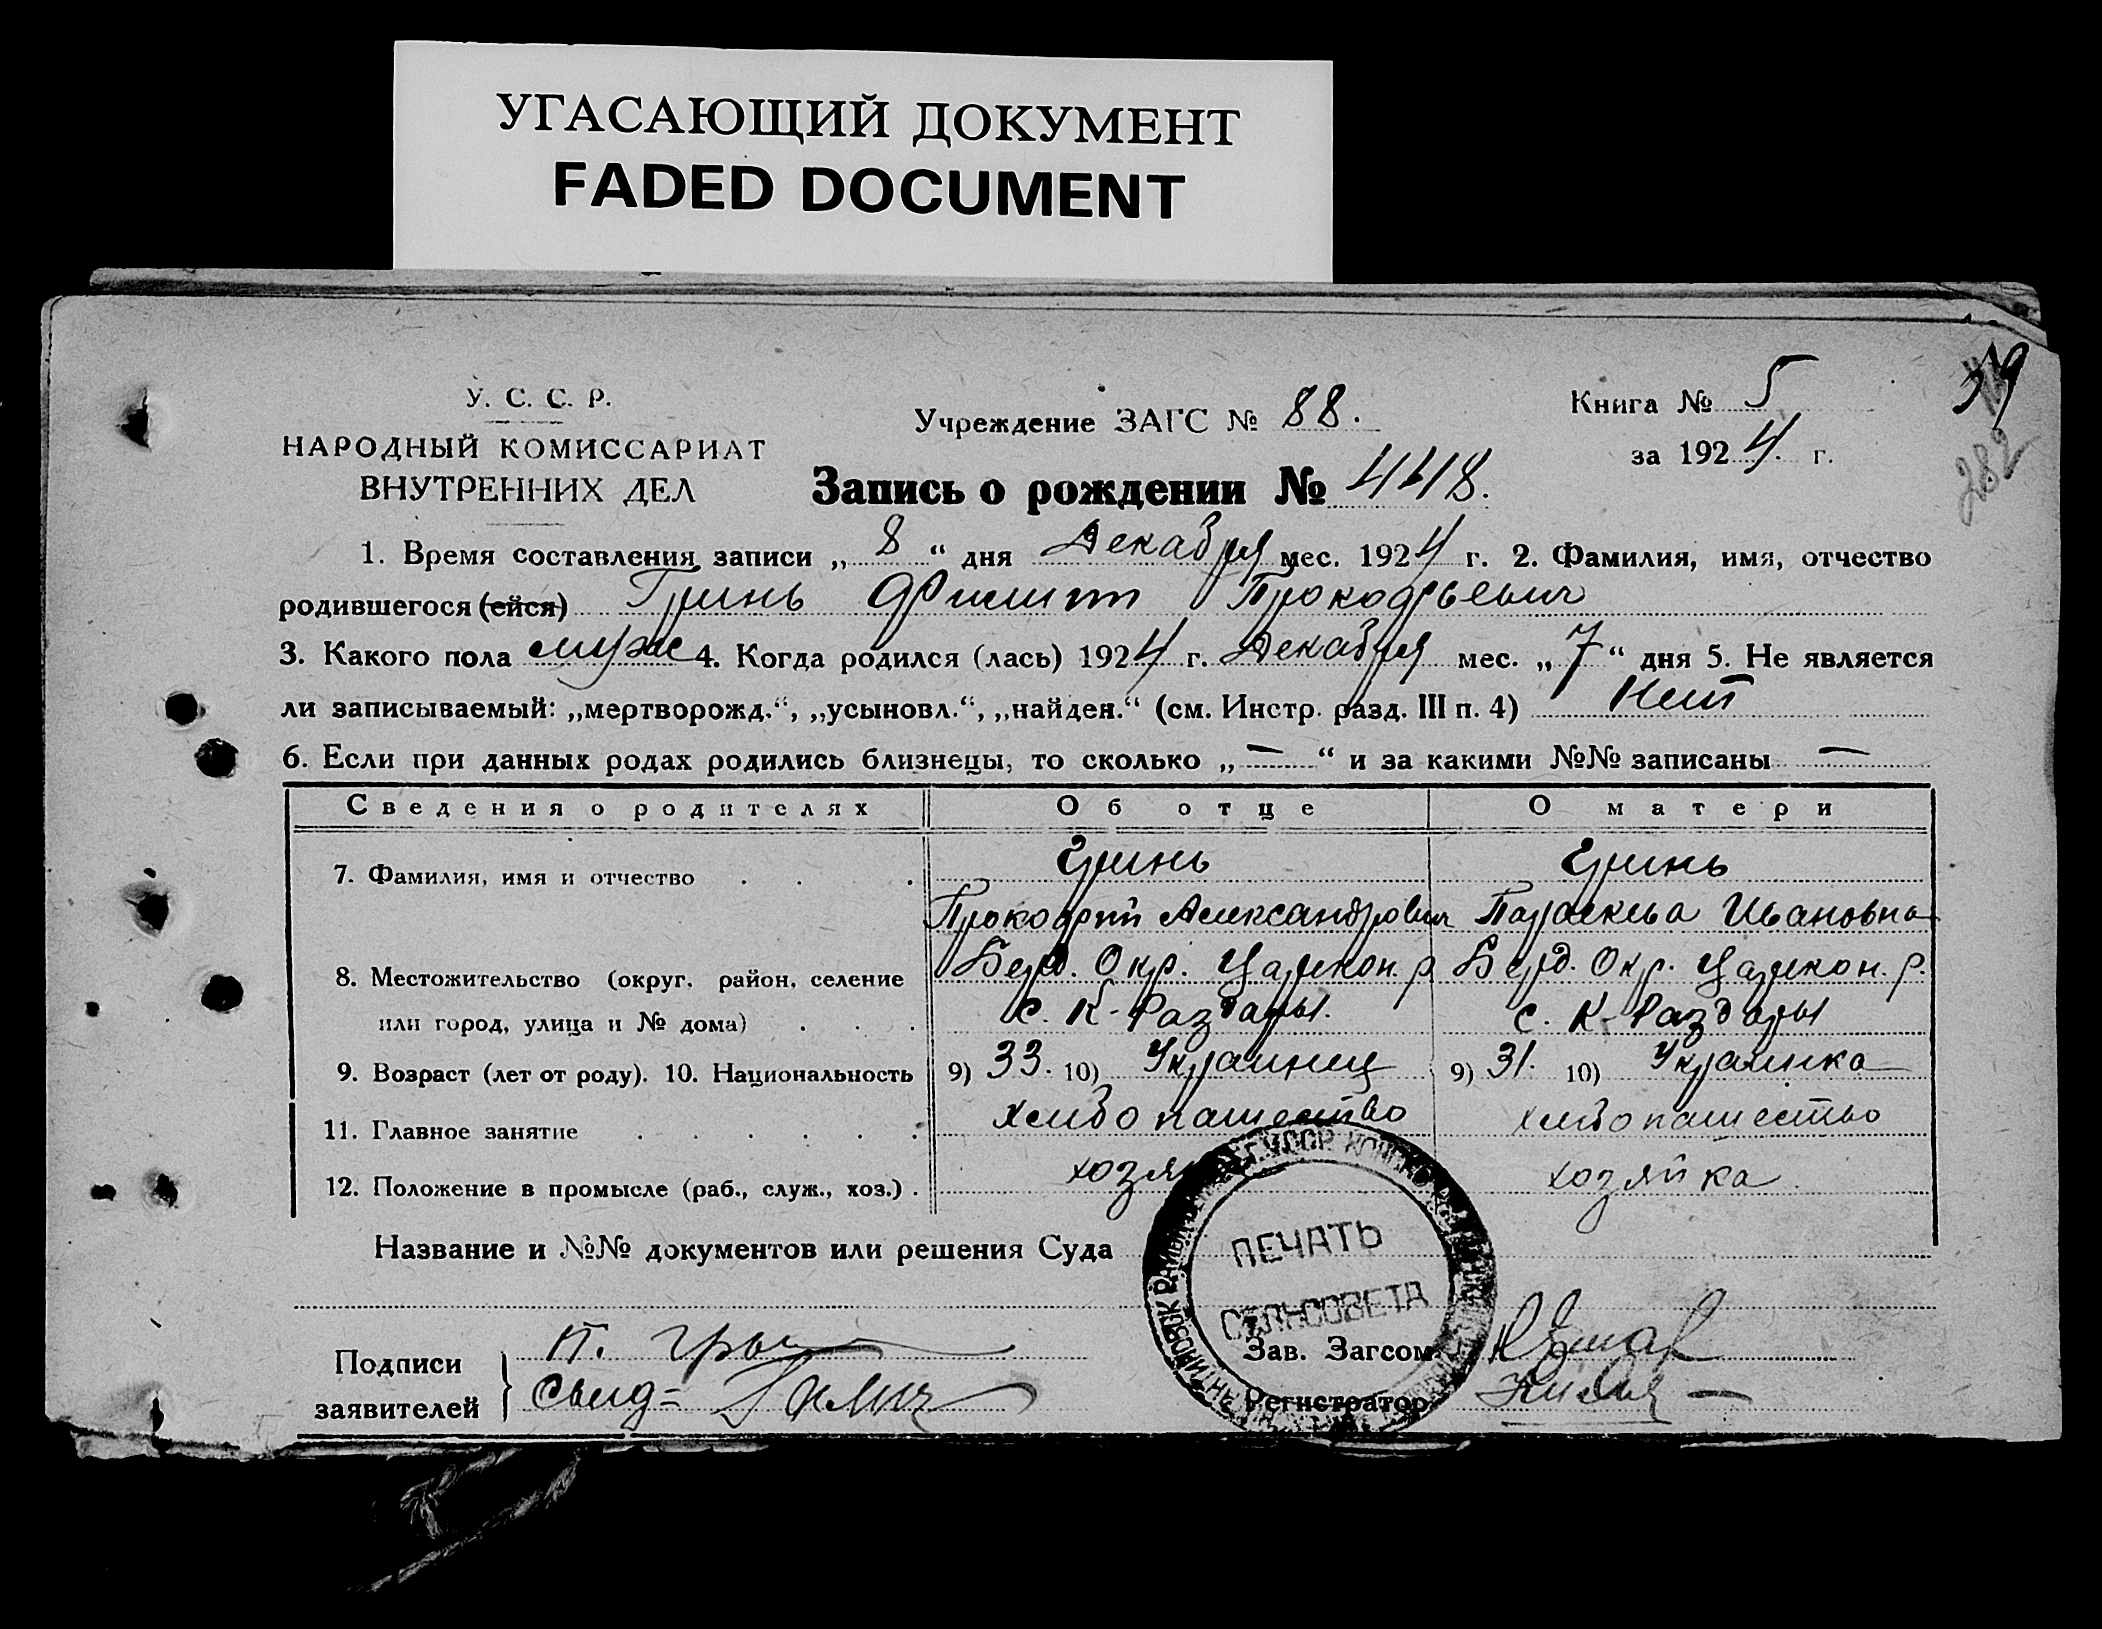 УГАСАЮЩИЙ ДОКУМЕНТ
FADED DOCUMENT
У. С. С. Р.
НАРОДНЫЙ КОМИССАРИАТ
ВНУТРЕННИХ ДЕЛ
Учреждение ЗАГС № 88.
Книга № 5
за 1924 г.
282
Запись о рождении № 448.
1. Время составления записи „ 8 “ дня Декабря мес. 1924 г. 2. Фамилия, имя, отчество
родившегося (ейся) Гринь Филипп Прокофьевич
3. Какого пола муж 4. Когда родился (лась) 1924 г. Декабря мес. „ 7 “ дня 5. Не является
ли записываемый: „мертворожд.“, „усыновл.“, „найден.“ (см. Инстр. разд. III п. 4) Нет
6. Если при данных родах родились близнецы, то сколько „ — “ и за какими №№ записаны —
Сведения о родителях Об отце О матери
7. Фамилия, имя и отчество Гринь Гринь
Прокофий Александрович Параскева Ивановна
8. Местожительство (округ, район, селение Берд. Окр. Царекон. р. Берд. Окр. Царекон. р.
или город, улица и № дома) с. К-Раздоры. с. К-Раздоры
9. Возраст (лет от роду). 10. Национальность 9) 33. 10) Украинец 9) 31. 10) Украинка
11. Главное занятие хлебопашество хлебопашество
12. Положение в промысле (раб., служ., хоз.) хозяйка
Название и №№ документов или решения Суда
ПЕЧАТЬ
СЕЛЬСОВЕТА
Подписи
заявителей
П. Грынь
Свид=
Зав. Загсом
Регистратор